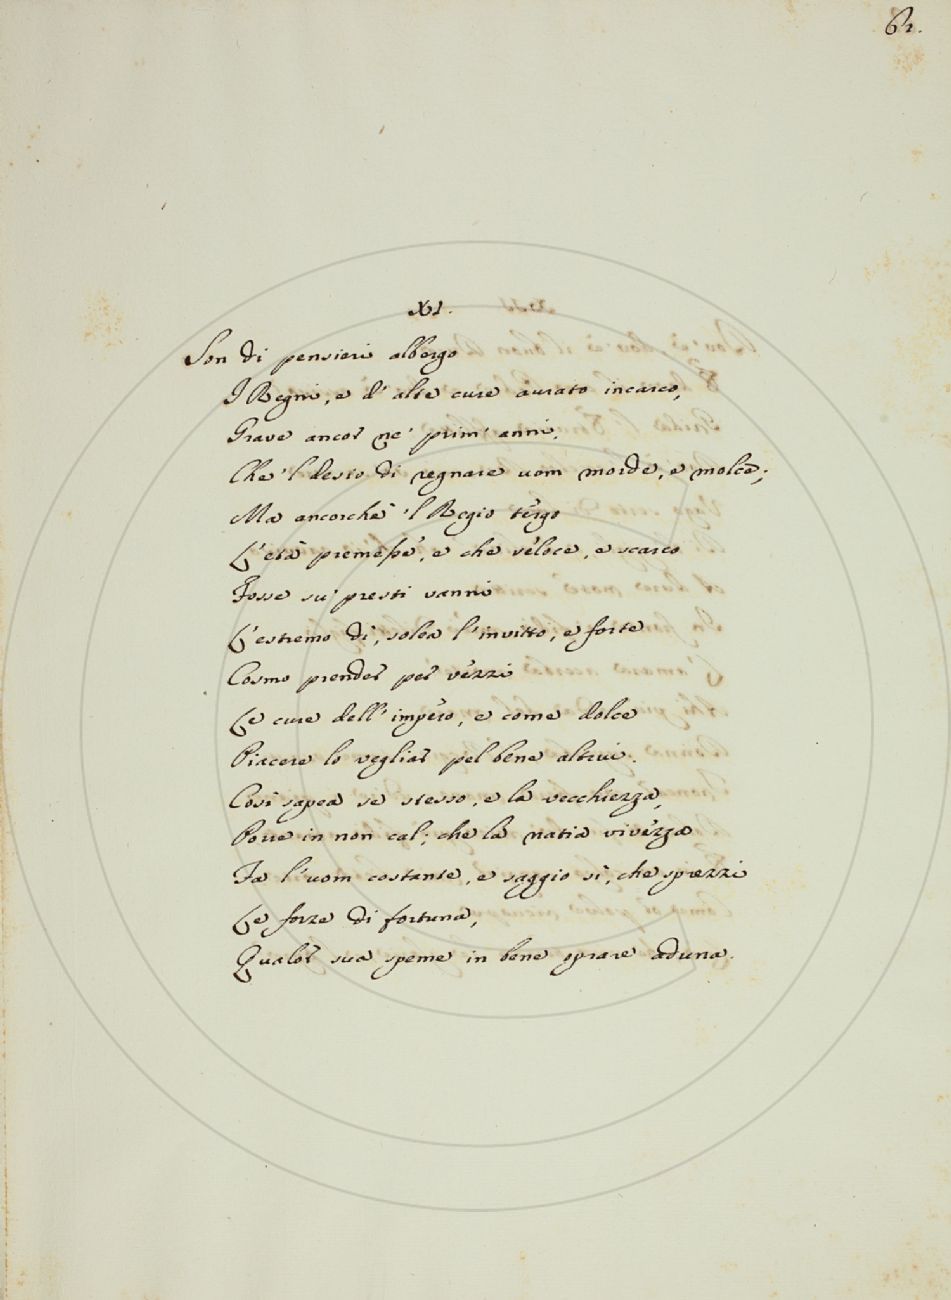 62.
XI.
Son di pensieri albergo
I Regni, e d'alte cure aurato incarco,
Grave ancor ne' prim' anni,
Che 'l desio di regnare uom morde, e molce;
Ma ancorchè 'l Regio tergo
L'età premesse, e che veloce, e scarco
Fosse su' presti vanni
L'estremo dì, solea l'invitto, e forte
Cosmo prender per vezzi
Le cure dell'impero, e come dolce
Piacere lo vegliar pel bene altrui.
Così sapea se stesso, e la vecchiezza,
Porre in non cal; che la natia vivezza
Fa l'uom costante, e saggio sì, che sprezzi
Le forze di fortuna,
Qualor sua speme in bene oprare aduna.